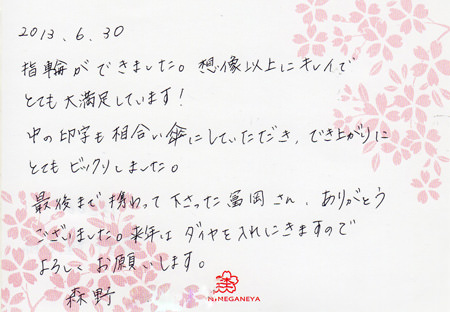 2013.6.30
指輪ができました。想像以上にキレイで
とても大満足しています!
中の印字も相合い傘にしていただき、でき上がりに
とてもビックリしました。
最後まで携わって下さった冨岡さん、ありがとう
ございました。来年はダイヤを入れにきますので
よろしくお願いします。
森野
N.MEGANEYA